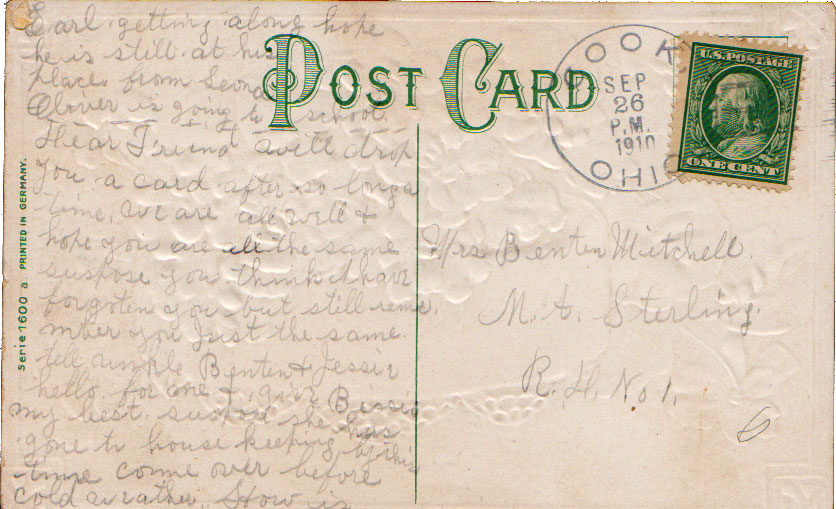 Earl getting along hope
he is still at his
place from Leona
Clover is going to school.
POST CARD
Dear Friend will drop
you a card after so long a
time, we are all well &
hope you are all the same
suspose you think I have
forgoten you but still reme
mber you just the same.
tell unkle Benten & Jessie
hello for me & give Bessie
my best. suspose she has
gone to house keeping by this
time come over before
cold weather. How is
COOK
SEP
26
P.M.
1910
OHIO
U.S. POSTAGE
ONE CENT
Mrs Benten Mitchell.
Mt. Sterling.
R.D. No 1.
6
Serie 1600 a PRINTED IN GERMANY.